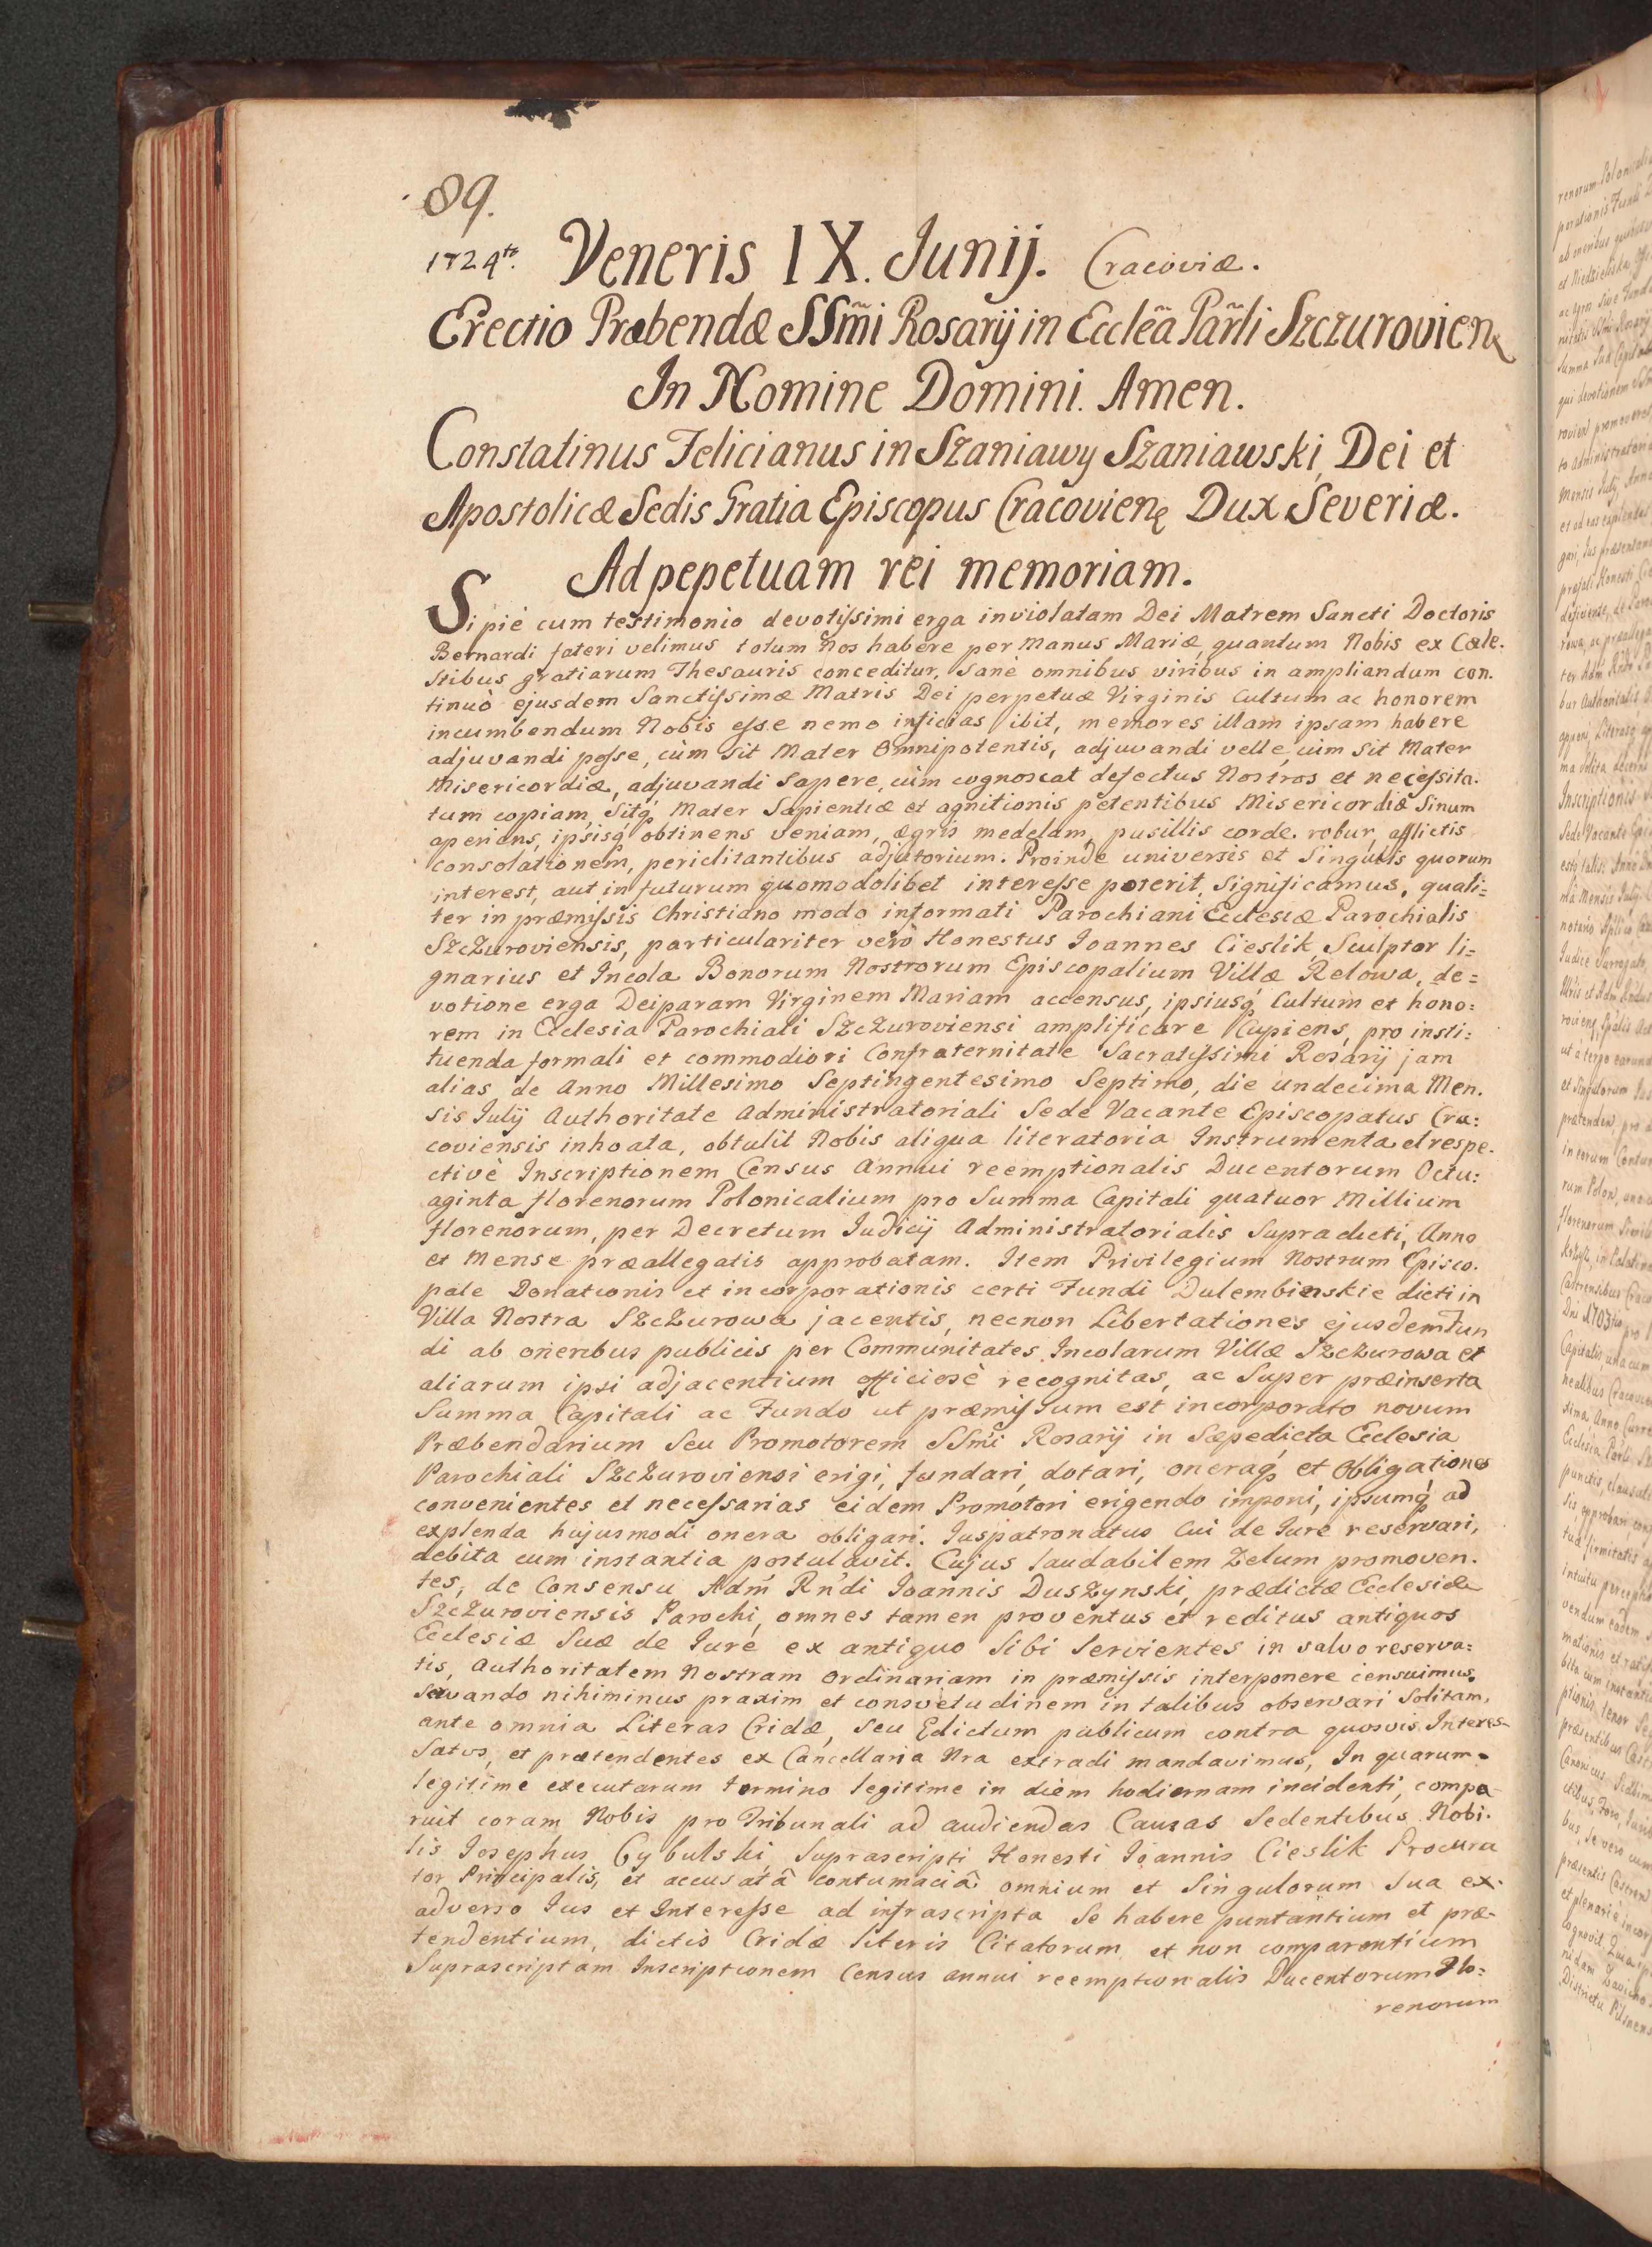 89.
1724to. Veneris IX. Junij. Cracoviæ.
Erectio Præbendæ SSm̃i Rosarij in Ecclẽa Par̃li Szczurovien̨
In Nomine Domini. Amen.
Constatinus Felicianus in Szaniawy Szaniawski, Dei et
Apostolicæ Sedis Gratia Episcopus Cracovienę Dux Severiæ.
Ad pepetuam rei memoriam.
Si piè cum testimonio devotissimi erga inviolatam Dei Matrem Sancti Doctoris
Bernardi fateri velimus totum Nos habere per manus Mariæ, quantum Nobis ex Cæle-
stibus gratiarum Thesauris conceditur, sanè omnibus viribus in ampliandum con-
tinuò ejusdem Sanctissimæ Matris Dei perpetuæ Virginis Cultum ac honorem
incumbendum Nobis esse nemo inficias ibit, memores illam ipsam habere
adjuvandi posse, cùm sit Mater Omnipotentis, adjuvandi velle, cùm sit Mater
Misericordiæ, adjuvandi sapere, cùm cognoscat defectus Nostros et necessita-
tum copiam, Sitq́ Mater Sapientiæ et agnitionis petentibus Misericordiæ Sinum
aperians, ipsisq́ obtinens veniam, ægris medelam, pusillis corde robur, afflictis
consolationem, periclitantibus adjutorium. Proinde universis et Singulis quorum
interest, aut in futurum quomodolibet interesse poterit, significamus, quali=
ter in præmissis Christiano modo informati Parochiani Ecclesiæ Parochialis
Szczuroviensis, particulariter verò Honestus Ioannes Cieslik, Sculptor li=
gnarius et Incola Bonorum Nostrorum Episcopalium Villæ Relowa, de=
votione erga Deiparam Virginem Mariam accensus, ipsiusq́ Cultum et hono=
rem in Ecclesia Parochiali Szczuroviensi amplificare Cupiens, pro insti=
tuenda formali et commodiori Confraternitate Sacratissimi Rosarij jam
alias de Anno Millesimo Septingentesimo Septimo, die undecima Men-
sis Julij Authoritate Administratoriali Sede Vacante Episcopatus Cra=
coviensis inhoata, obtulit Nobis aliqua literatoria Instrumenta et respe-
ctivè Inscriptionem Census Annui reemptionalis Ducentorum Octu=
aginta florenorum Polonicalium pro Summa Capitali quatuor Millium
florenorum, per Decretum Iudicij Administratorialis Supradicti, Anno
et Mense præallegatis approbatam. Item Privilegium Nostrum Episco-
pale Donationis et incorporationis certi Fundi Dulembienskie dicti in
Villa Nostra Szczurowa jacentis, necnon Libertationes ejusdem Fun
di ab oneribus publicis per Communitates Incolarum Villæ Szczurowa et
aliarum ipsi adjacentium officiosè recognitas, ac Super præinserta
Summa Capitali ac Fundo ut præmissum est incorporato novum
Præbendarium Seu Promotorem SSm̃i Rosarij in Sæpedicta Ecclesia
Parochiali Szczuroviensi erigi, fundari, dotari, oneraq́ et Obligationes
convenientes et necessarias eidem Promotori erigendo imponi, ipsumq́ ad
explenda hujusmodi onera obligari. Iuspatronatus Cui de Iure reservari,
debita cum instantia postulavit. Cujus laudabilem Zelum promoven-
tes, de Consensu Adm̃ Rñdi Ioannis Duszynski, prædictæ Ecclesiæ
Szczuroviensis Parochi, omnes tamen proventus et reditus antiquos
Ecclesiæ Suæ de Iure ex antiquo Sibi Servientes in salvo reserva=
tis, Authoritatem Nostram Ordinariam in præmissis interponere censuimus.
servando nihiminus praxim et consvetudinem in talibus observari Solitam,
ante omnia Literas Cridæ, seu Edictum publicum contra quosvis Interes-
satos, et prætendentes ex Cancellaria Nra extradi mandavimus, In quarum
legitime executarum termino legitime in diem hodiernam incidenti, compa-
ruit coram Nobis pro Tribunali ad audiendas Causas Sedentibus Nobi-
lis Josephus Cybulski, Suprascripti Honesti Joannis Cieslik Procura
tor Principalis, et accusatâ contumaciâ omnium et Singulorum Sua ex-
adverso Ius et Interesse ad infrascripta se habere puntantium et præ-
tendentium, dictis Cridæ literis Citatorum et non comparentium
Suprascriptam Inscriptionem Census annui reemptionalis Ducentorum Flo=
renorum